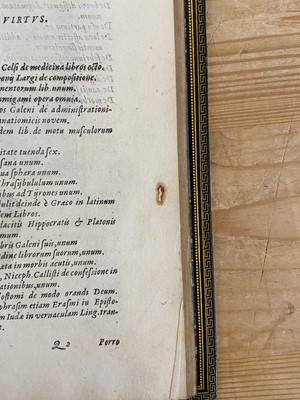 VIRTVS.
Celsi de medicina libros octo.
Largi de compositione.
mentorum lib unum.
omnia.
os Galeni de administrationi-
anatomicis novem.
dem lib. de motu musculorum
itate tuenda sex.
sana unum.
qua sphæra unum.
hrasybulum unum.
ibus ad Tyrones unum.
è Græco in latinum
dem Libros.
lacitis Hippocratis & Platonis
mum.
bris Galeni suis, unum
dine librorum suorum, unum.
æta in morbis acutis, unum.
, Niceph. Callisti de confessione in
ationibus, unum.
ostomi de modo orandi Deum.
phrasim etiam Erasmi in Episto-
m Iudæ in vernaculam Ling. tran-
Porro